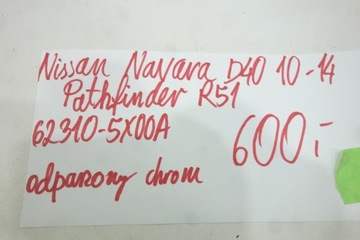 Nissan Navara D40 10-14
Pathfinder R51
62310-5X00A
600,-
odparzony chrom